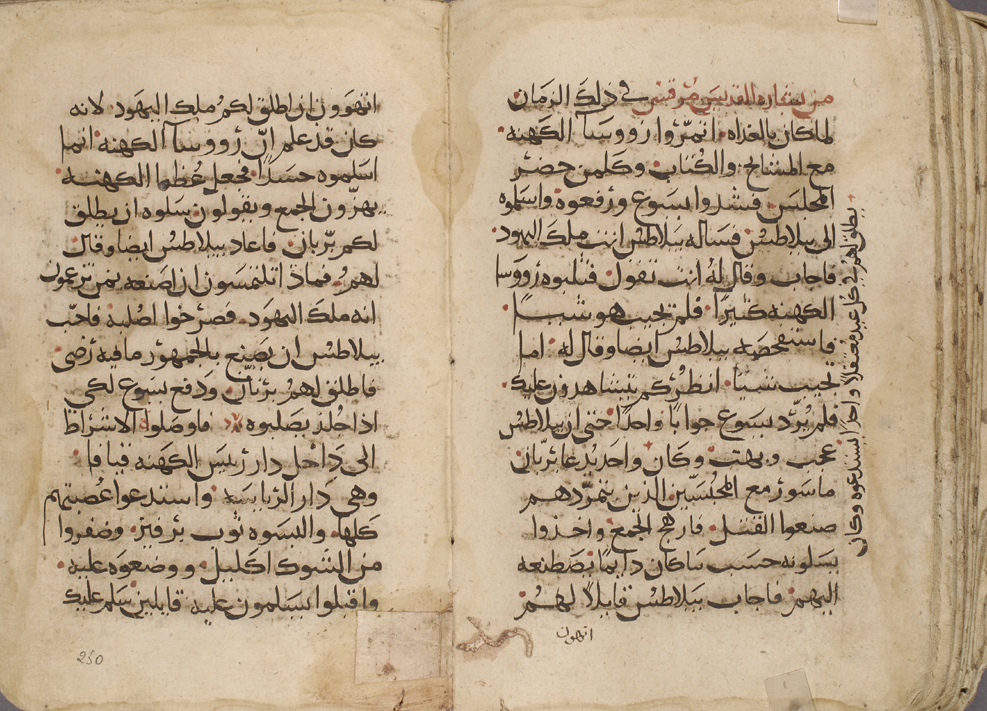 من بشارة القديس مرقس في ذلك الزمان
لما كان بالغداه اتمرّوا رووسا الكهنه
مع المشايخ والكُتاب وكلمن حضر
المجلس فشدوا يسوع ورفعوه واسلموه
الى بيلاطس فساله بيلاطس انت ملك اليهود
فاجاب وقال له انت تقول فثلبوه رووسا
الكهنه كثيرًا فلم يجيب هو شيًا
فاستفحصه بيلاطس ايضا وقال له اما
تجيب شيئا انظركم يتشاهدون عليك
فلم يُرّد يسوع جوابًا واحدًا حتى ان بيلاطس
عجب وبهت وكان واحد يدعا بربان
ماسور مع المحبسين الذين بتمردهم
صنعوا القتل فارهج الجمع واخذوا
يسلونه حسب ماكان دايمًا يصطنعه
اليهم فاجاب بيلاطس قايلًا لهم
اتهون
يطلق لهم في كل عيد معتقلا واحدًا يستدعوه وكان
اتهوون ان اطلق لكم ملك اليهود لانه
كان قد علم انّ رووسا الكهنه انما
اسلموه حسدًا فجعل عُظما الكهنه
يهزّون الجمع ويقولون سلوه ان يطلق
لكم بربان فاعاد بيلاطس ايضا وقال
لهم فماذا تلتمسون ان اصنعه بمن تزعمون
انه ملك اليهود فصرخوا اصلبه فاحب
بيلاطس ان يصنع بالجمهور مافيه رضى
فاطلق لهم بربان ودفع يسوع لكي
اذا جُلد يصلبوه فاوصلوه الاشراط
الى داخل دار رئيس الكهنه قيافا
وهي دار الرياسه واستدعوا عُصبتهم
كلها والبسوه ثوب برفير وضفروا
من الشوك اكليل ووضعوه عليه
واقبلوا يسلمون عليه قايلين سلم عليك
250